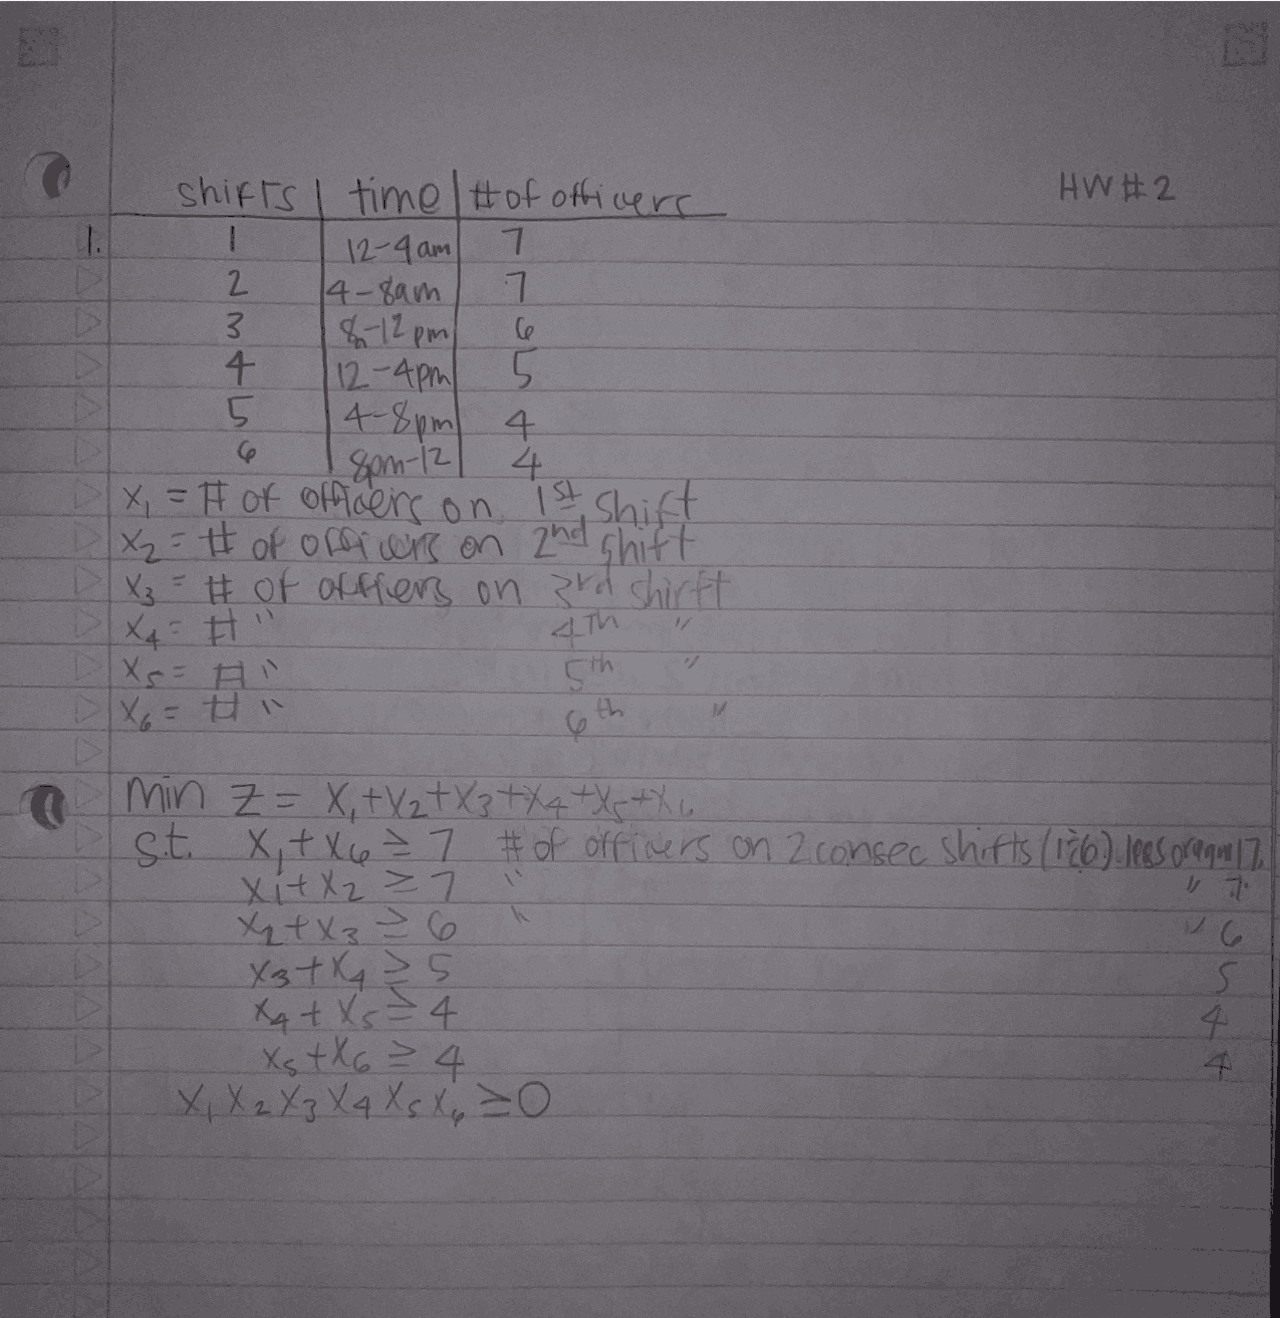 HW #2
shifts | time | # of officers
1. 1 12-4am 7
2 4-8am 7
3 8-12pm 6
4 12-4pm 5
5 4-8pm 4
6 8pm-12 4
X₁ = # of officers on 1st shift
X₂ = # of officers on 2nd shift
X₃ = # of officers on 3rd shirft
X₄ = # " 4th "
X₅ = # " 5th "
X₆ = # " 6th "
Min Z = X₁+X₂+X₃+X₄+X₅+X₆
s.t. X₁+X₆ ≥ 7 # of officers on 2 consec shifts
X₁+X₂ ≥ 7 " " 7
X₂+X₃ ≥ 6 " " 6
X₃+X₄ ≥ 5 5
X₄+X₅ ≥ 4 4
X₅+X₆ ≥ 4 4
X₁ X₂ X₃ X₄ X₅ X₆ ≥ 0